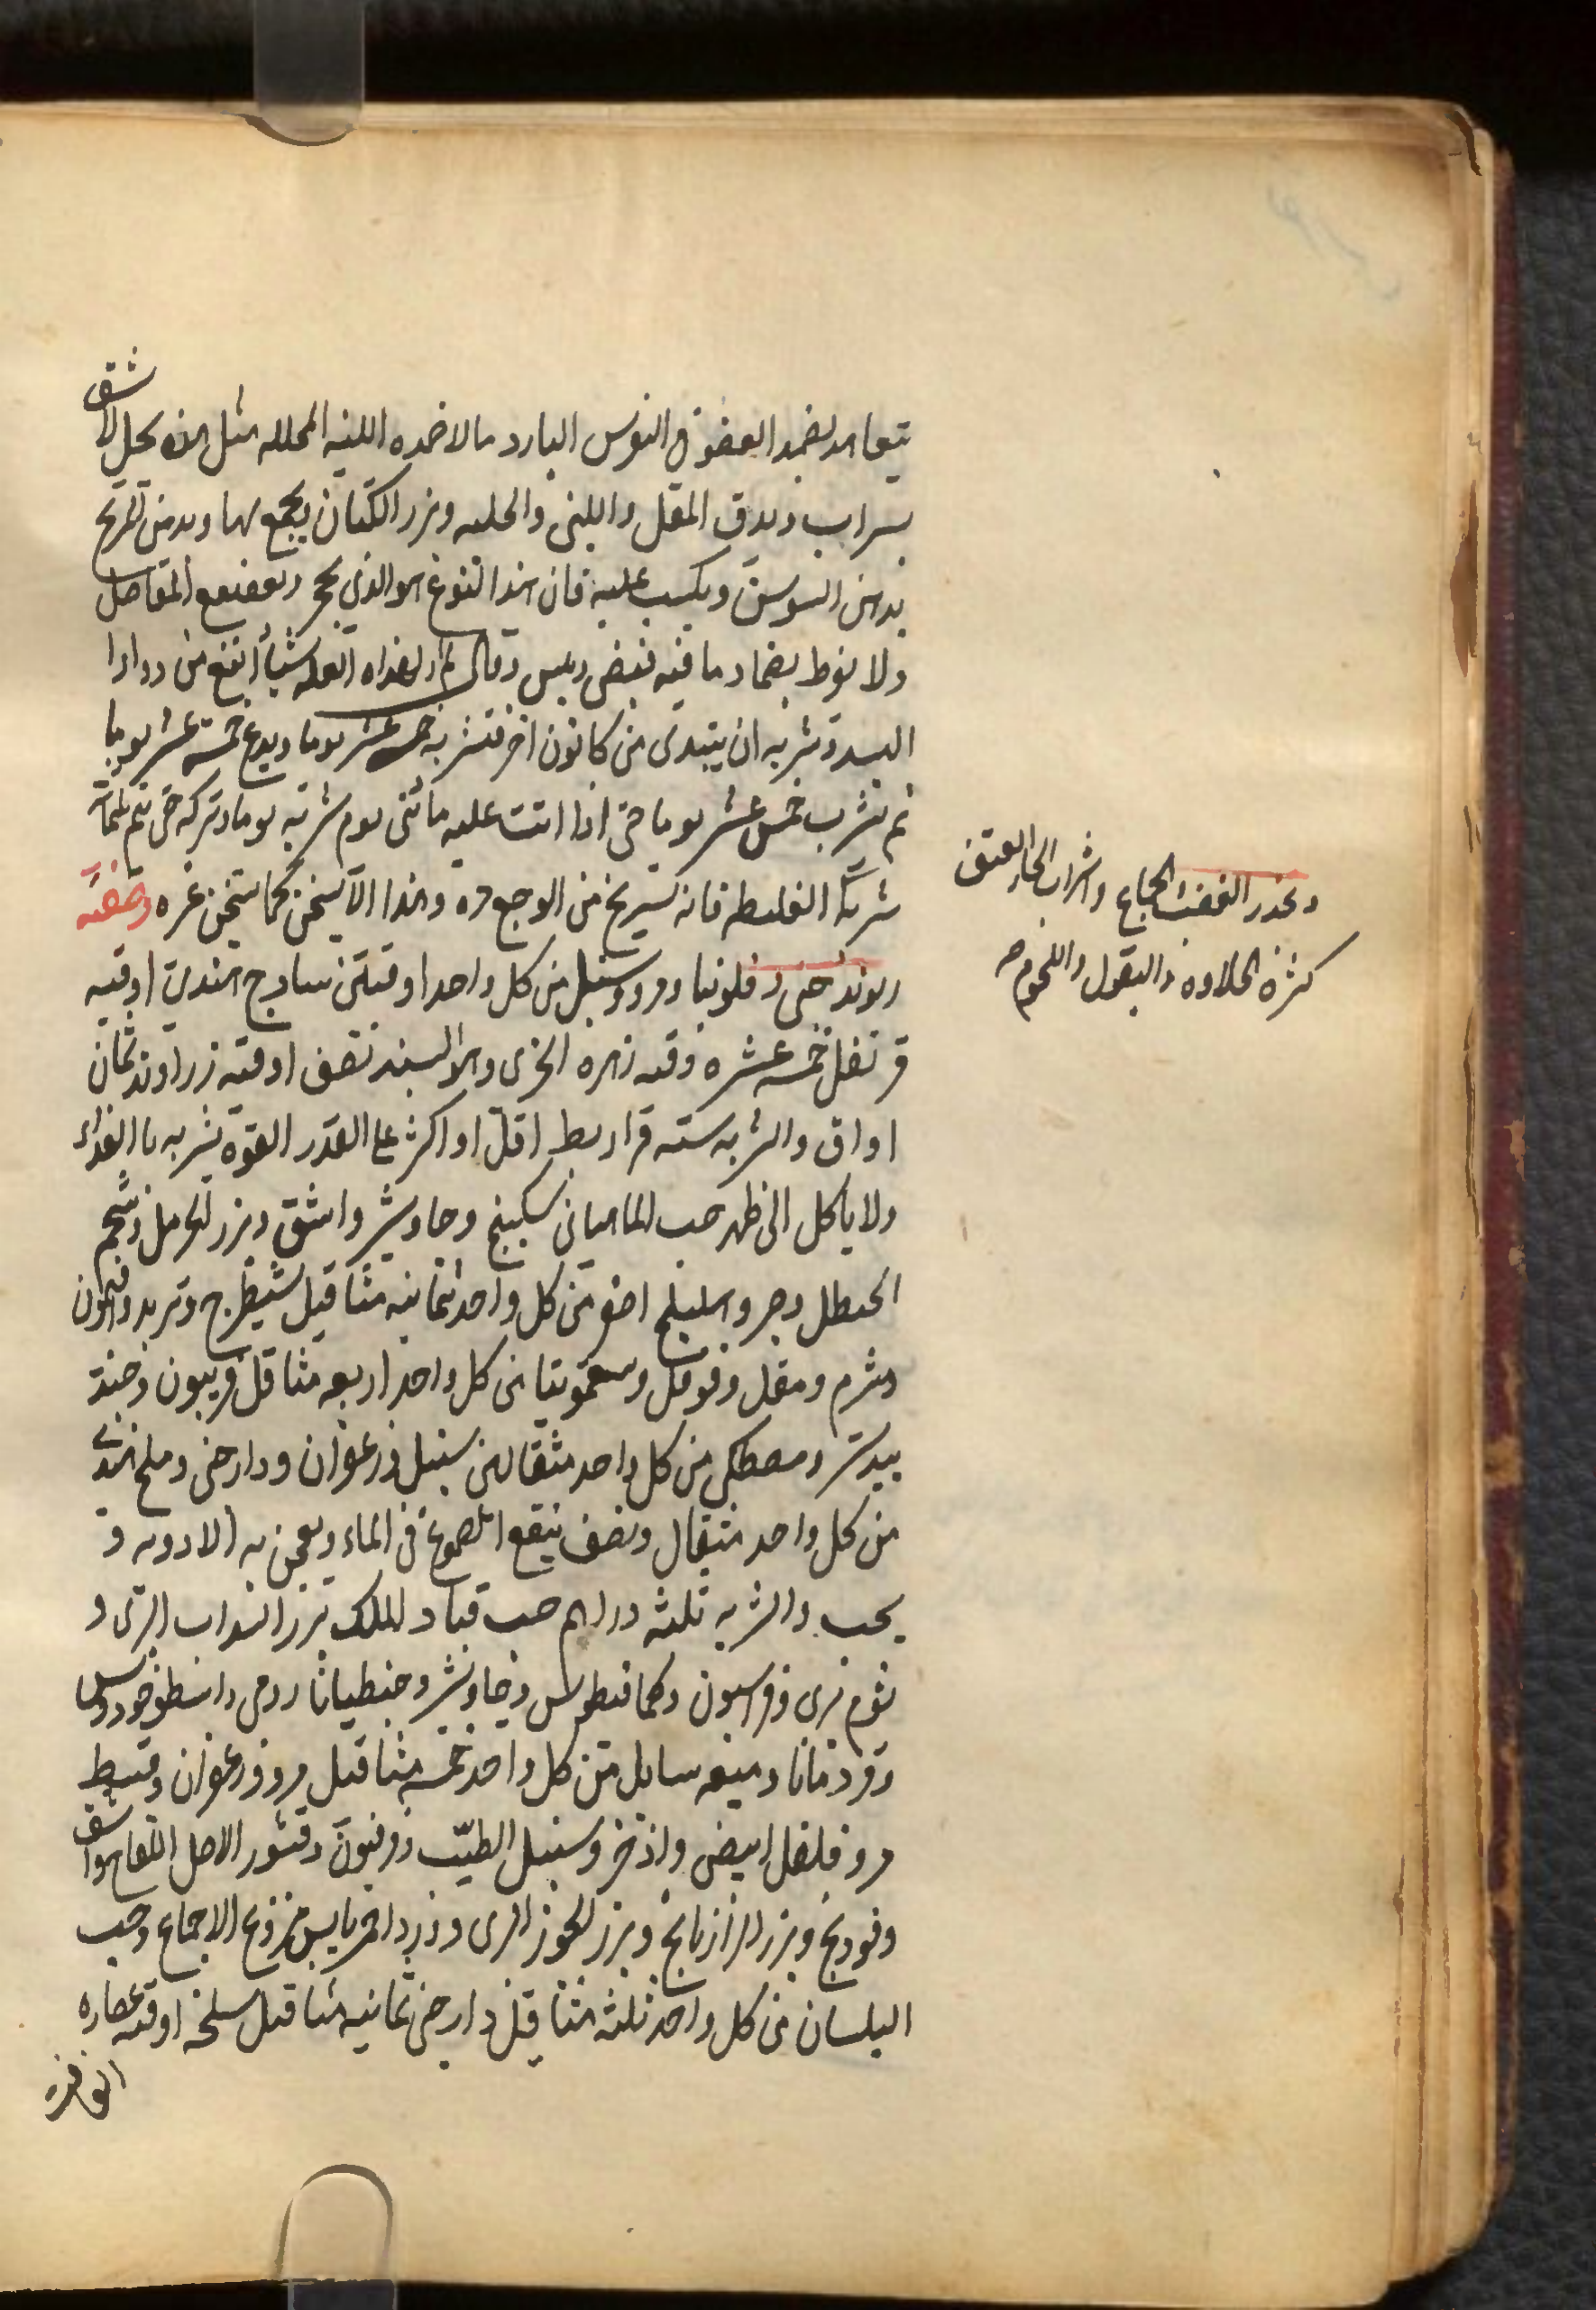 يتعاهد بضمد العضو في النقرس البارد بالاضمده اللينه المحلله مثل هذه يحل الاشق
بشراب ويدق المقل واللبنى والحلبه وبزر الكتان ويجمع بهما ويدهن
بدهن السوسن ويكب عليه فان هذا النوع هو الذي يحجر ويعقفع المفاصل
ولا يفرط بضماد ما فيه قبض ويبس وقال لم ار لهذه العله شيأ انفع من دواء
البسد وشربه ان يبتدى من كانون اخر فتشربه خمسه عشر يوما ويدع خمسة عشر يوما
ثم تشرب خمس عشر يوما حتى اذا اتت عليه مائتى يوم شربه يوما وتركه حتى يتم ثلثمائة
شربة الغليظه فانه يستريح من الوجع مره وهذا لا يسخن كما يسخن غيره وصفته
ريوند صينى وفلونيا ومر وسنبل من كل واحد اوقيتين سادج هندى اوقيه
قرنفل خمسه عشره وقيه زهره وهو البسد نصف اوقيه زراوند ثمان
اواق والشربه سته قراريط اقل او اكثر على القدر القوة يشربه بالغداء
ولا ياكل الى ظهر حب الماهيانى سكبينج وجاوشير واشق وبزر الحرمل وشحم
الحنطل وصبر وهليلج اصفر من كل واحد ثمانيه مثاقيل شيطرج وتربد وافيمون
وشبرم ومقل وقوقل وسقمونيا من كل واحد اربعه مثاقيل فربيون وجند
بيدستر ومصطكى من كل واحد مثقالين سنبل وزعفران ودارصينى وملح هندى
من كل واحد مثقال ونصف ينقع الصموغ فى الماء ويعجن به الادويه و
يحب والشربه ثلثه دراهم حب قباد الملك بزر السداب البرى و
ثوم برى وفراسيون وكمافيطوس وجاوشير وجنطيانا رومى واسطوخودوس
وقردمانا وميعه سايله من كل واحد خمسه مثاقيل مر وزعفران وقسط
مر وفلفل ابيض واذخر وسنبل الطيب وفربيون وقشور الاصل اللفاح واشق
وفودنج وبزر الرازيانج وبزر الجزر البرى وورد احمر يابس منزوع الاقماع وحب
البلسان من كل واحد ثلثه مثاقيل دارصينى ثمانيه مثاقيل سليخه اوقيه عصاره
ويحذر الغضب والجماع واشراب الحار العتيق
كثرة الحلاوه والبقول واللحوم صح